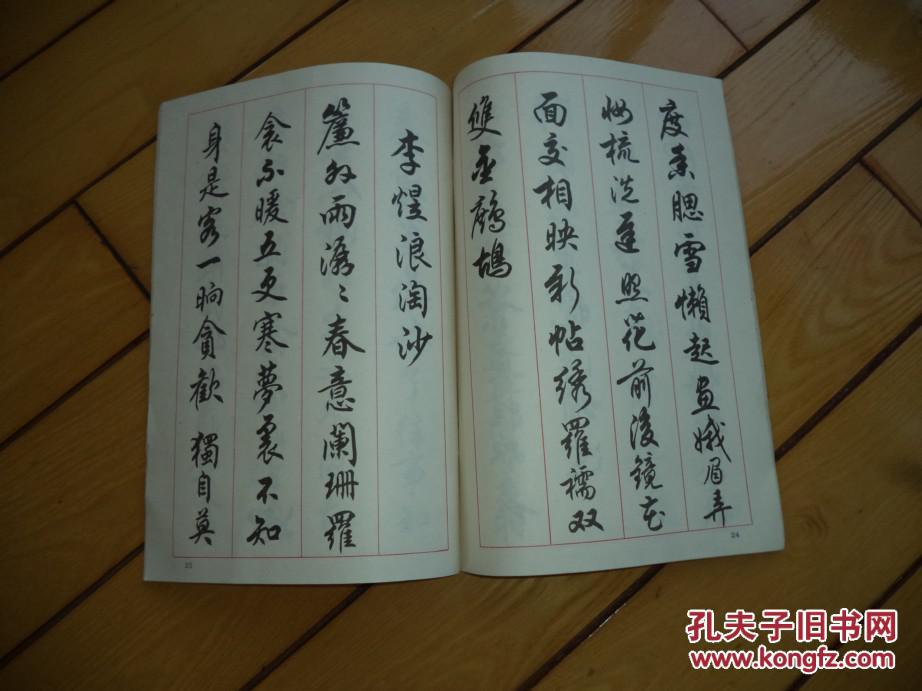 度香腮雪懒起画娥眉弄
妆梳洗迟照花前後镜花
面交相映新帖绣罗襦双
双金鹧鸪
24
李煜浪淘沙
簾外雨潺〻春意阑珊羅
衾不暖五更寒夢裏不知
身是客一晌貪歡 獨自莫
25
孔夫子旧书网
www.kongfz.com